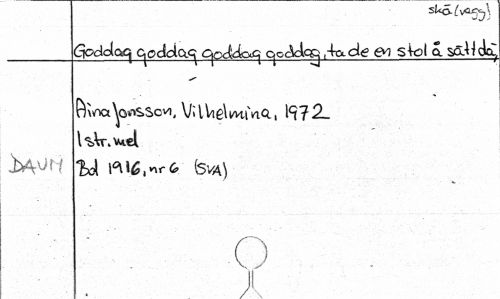 skä (vagg)
Goddag goddag goddag goddag, ta de en stol å sätt dä,
Aina Jonsson, Vilhelmina, 1972
1 str. mel
DAUM Bd 1916, nr 6 (SVA)